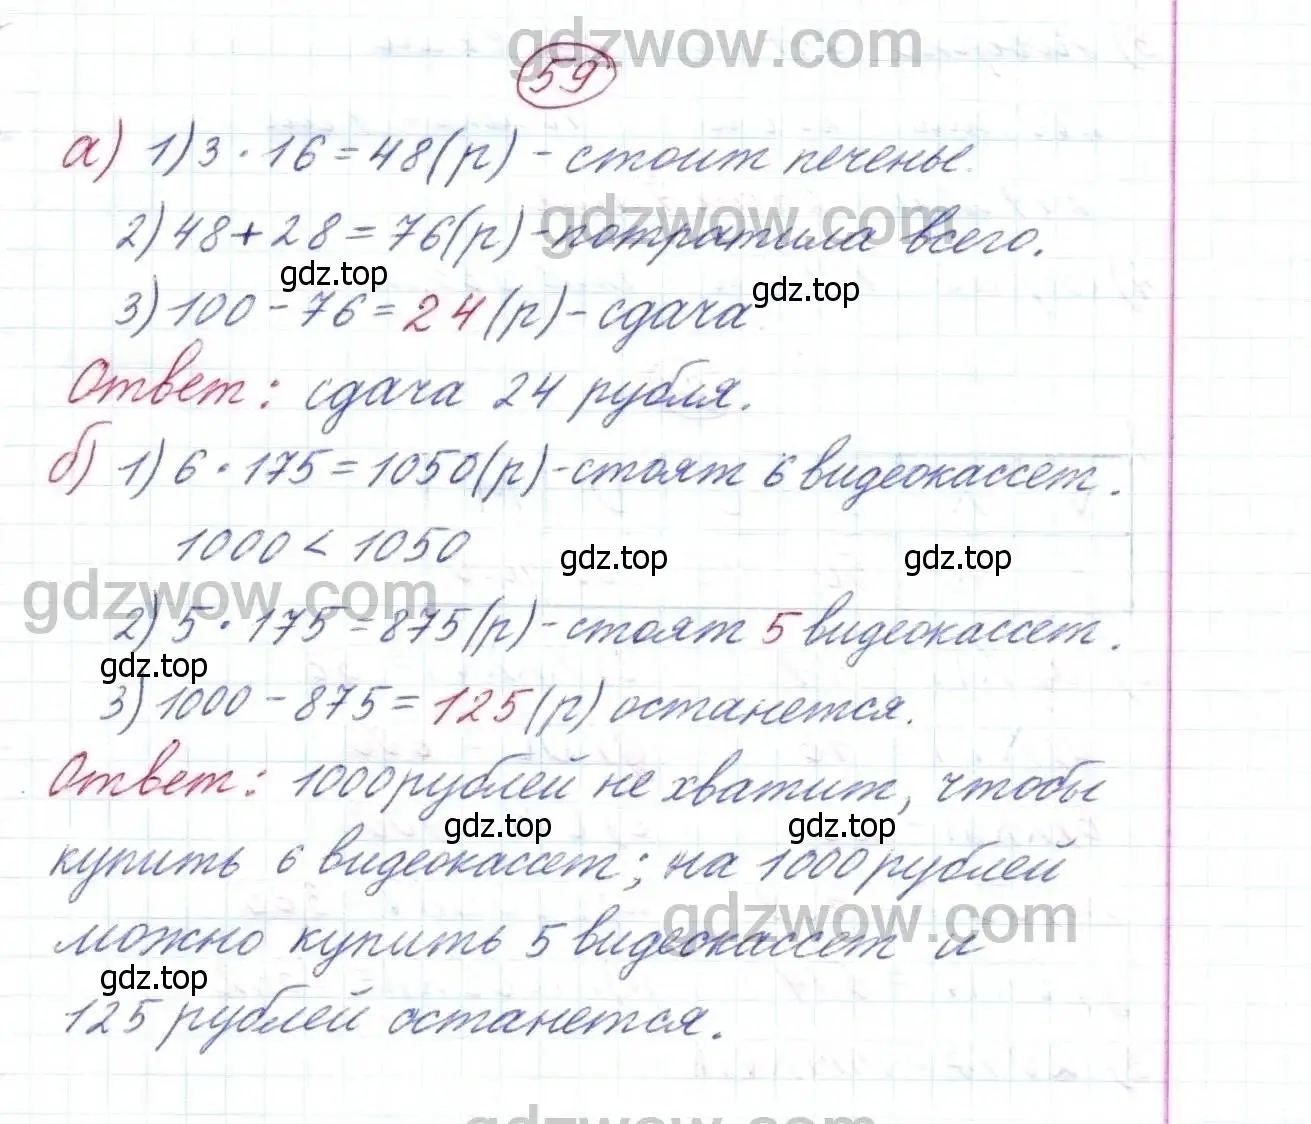 gdzwow.com
59
а) 1) 3 · 16 = 48 (р) - стоит печенье.
gdzwow.com
2) 48 + 28 = 76 (р) - потратила всего.
gdz.top gdz.top
3) 100 - 76 = 24 (р) - сдача
Ответ: сдача 24 рубля.
б) 1) 6 · 175 = 1050 (р) - стоят 6 видеокассет.
1000 < 1050 gdz.top gdz.top
gdzwow.com
2) 5 · 175 = 875 (р) - стоят 5 видеокассет.
gdz.top
3) 1000 - 875 = 125 (р) останется.
Ответ: 1000 рублей не хватит, чтобы
gdz.top gdz.top
купить 6 видеокассет; на 1000 рублей
gdzwow.com
можно купить 5 видеокассет и
gdz.top
125 рублей останется.
gdzwow.com